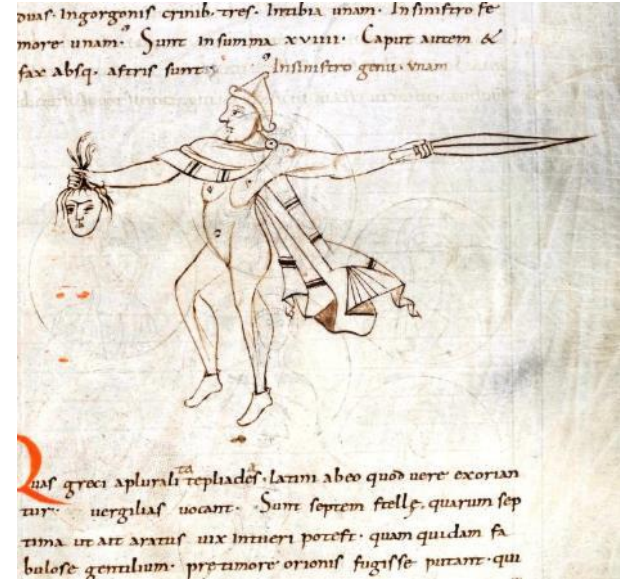 duas· Ingorgonis crinib· tres· Intibia unam· Insinistro fe
more unam· Sunt insumma xviiii· Caput autem &
fax absq· astris sunt· Insinistro genu· unam
Quas greci aplurali tate pliades· latini abeo quod uere exorian
tur· uergilias uocant· Sunt septem stellę, quarum sep
tima ut ait aratus uix intueri potest· quam quidam fa
bulose gentilium· prętimore orionis fugisse putant· qui